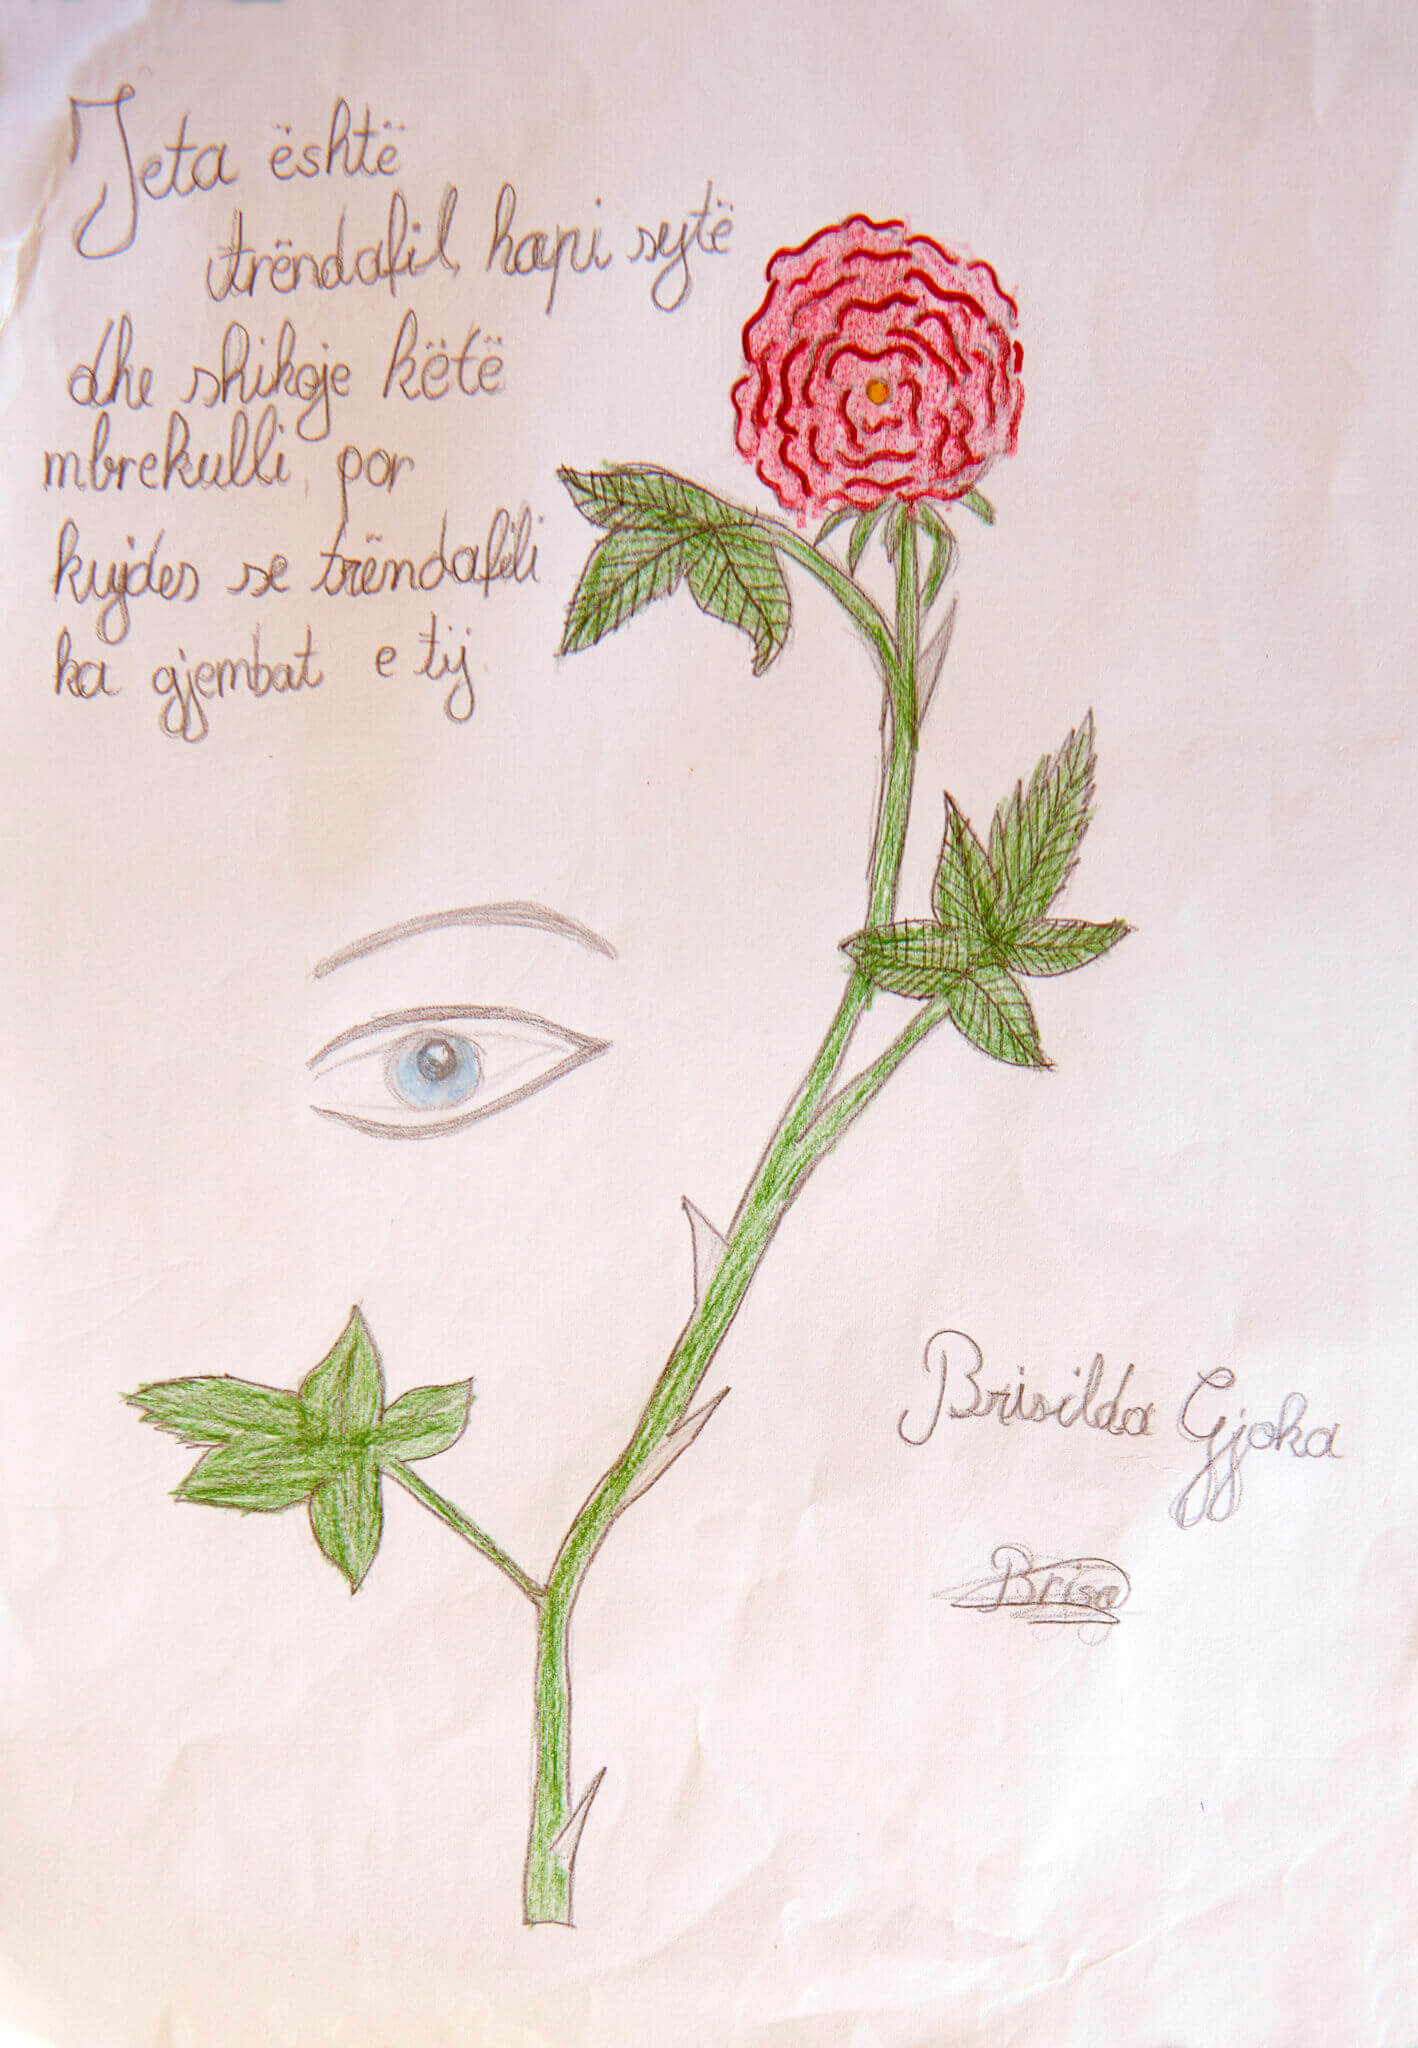 Jeta është
trëndafil, hapi sytë
dhe shikoje këtë
mbrekulli, por
kujdes se trëndafili
ka gjembat e tij.
Brisilda Gjoka
Brisa